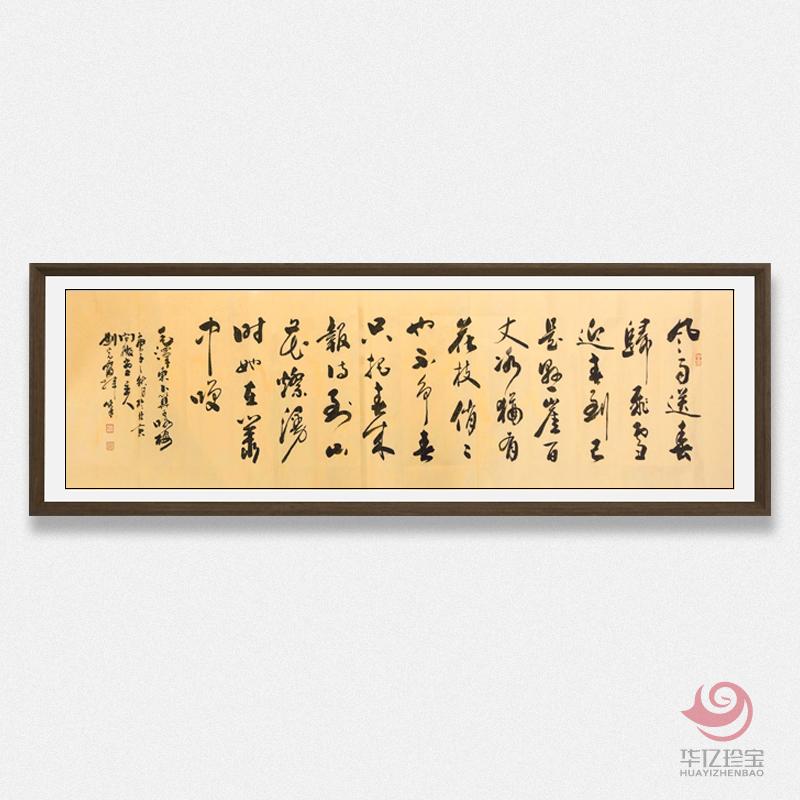 风雨送春
歸飛雪
迎春到已
是懸崖百
丈冰猶有
花枝俏〻
也不争春
只把春来
報待到山
花爛漫
时她在叢
中笑
毛澤東卜算子咏梅
庚子
刘
华亿珍宝
HUAYIZHENBAO